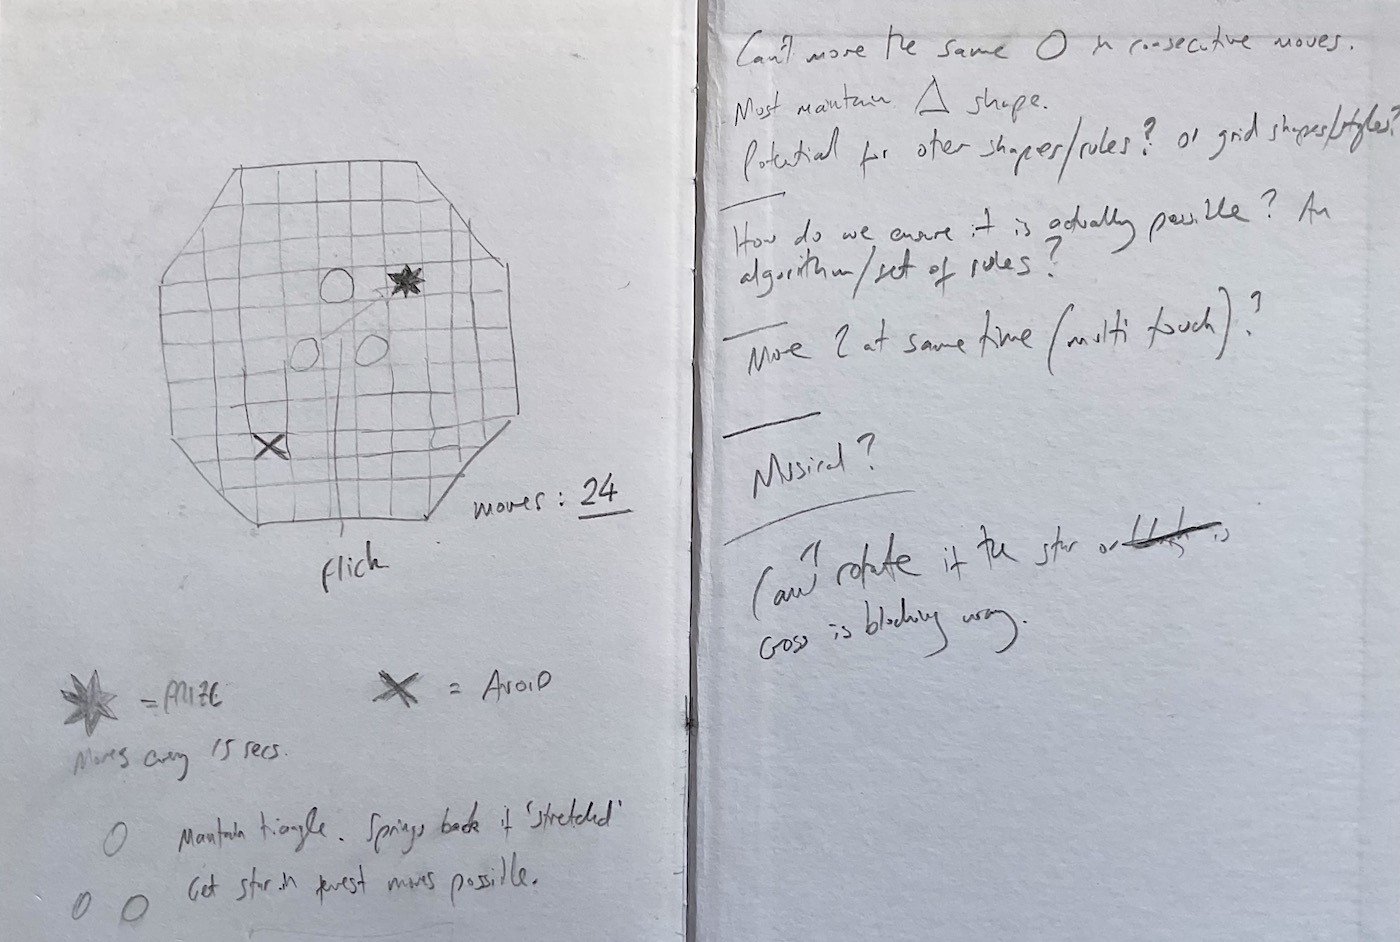 moves : 24
flick
= PRIZE
X = AVOID
Moves every 15 secs.
Maintain triangle. Springs back if 'stretched'
Get star in fewest moves possible.
Can't move the same O in consecutive moves.
Must maintain △ shape.
Potential for other shapes/rules? or grid shapes/styles?
How do we ensure it is actually possible? An
algorithm/set of rules?
Move 2 at same time (multi touch)?
Musical?
Can't rotate if the star or is
cross is blocking way.